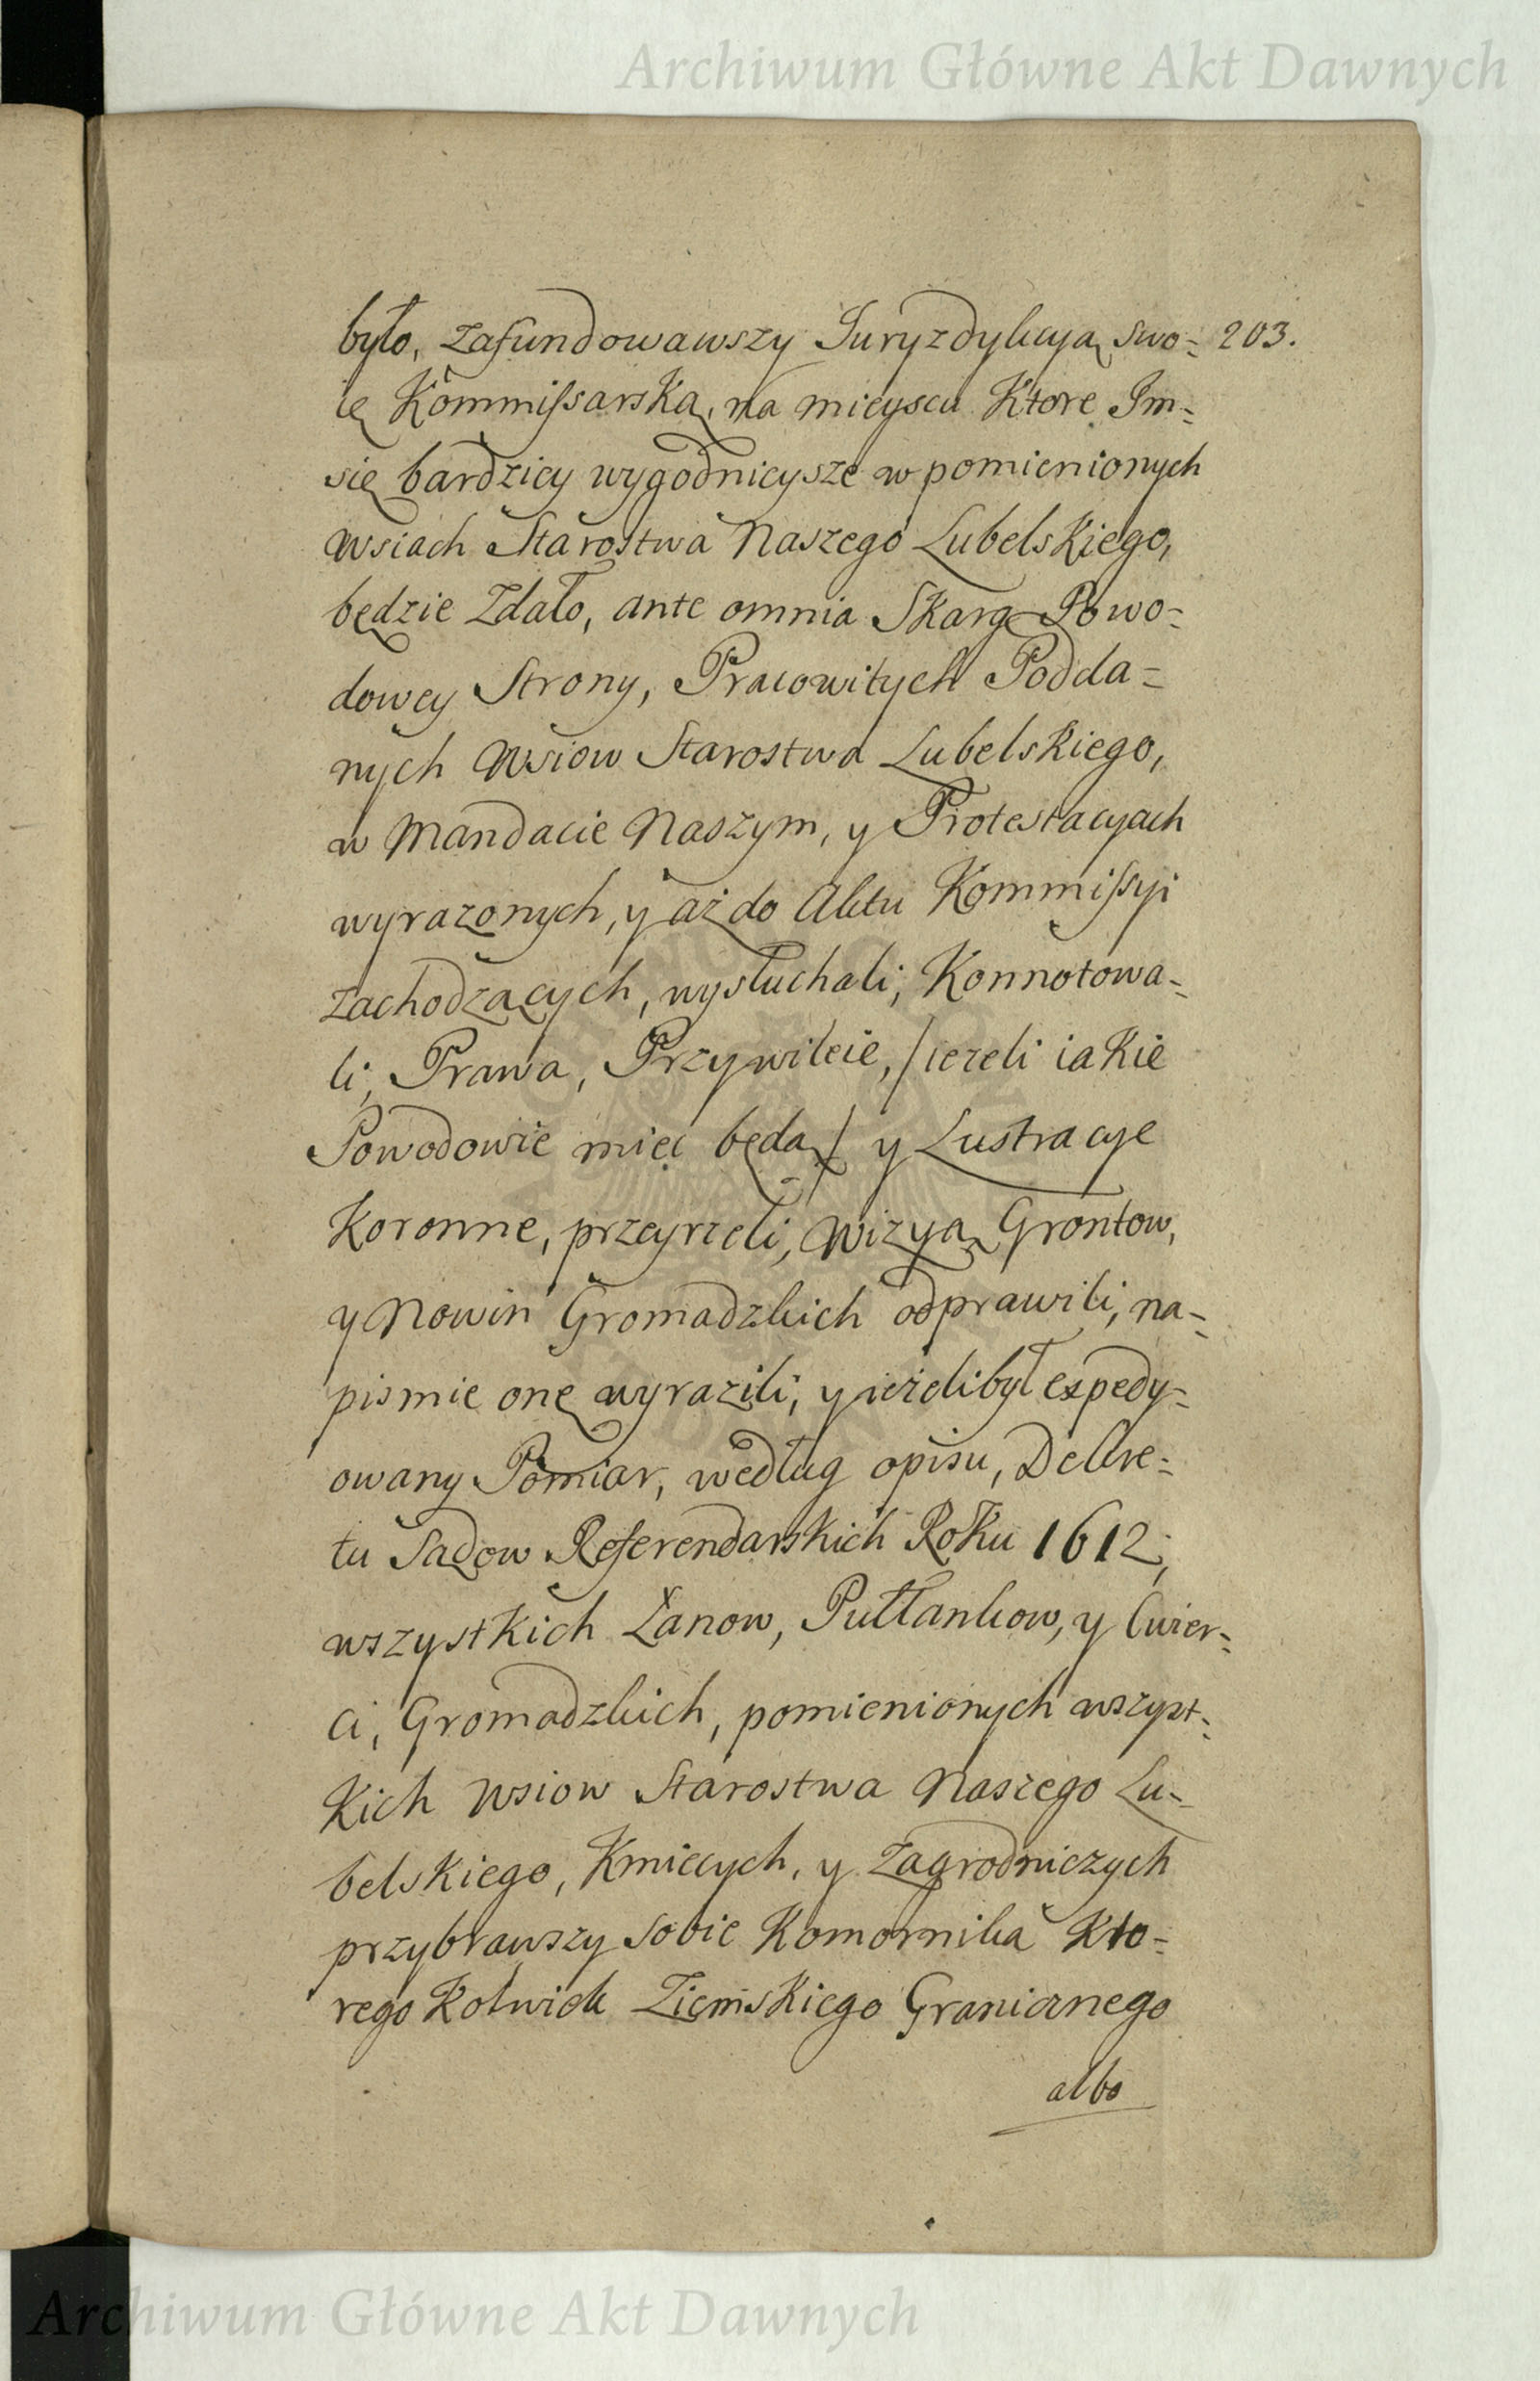 Archiwum Główne Akt Dawnych
było, zafundowawszy Juryzdykcyą swo= 203.
ię Kommissarską, na mieyscu Ktore Im=
się bardziey wygodnieysze w pomienionych
wsiach Starostwa Naszego Lubelskiego,
będzie zdało, ante omnia Skarg Powo=
dowey Strony, Pracowitych Podda=
nych Wsiow Starostwa Lubelskiego,
w Mandacie Naszym, y Protestacyach
wyrazonych, y aż do Aktu Kommissyi
zachodzących, wysłuchali, Konnotowa=
li, Prawa, Przywileie, /iezeli iakie
Powodowie mieć będą/ y Lustracye
Koronne, przeyrzeli, Wizyą Grontow,
y Nowin Gromadzkich odprawili, na=
pismie onę wyrazili, y ieżeli był expedy=
owany Pomiar, według opisu, Dekre=
tu Sądow Referendarskich Roku 1612,
wszystkich Łanow, Pułłankow, y Cwier=
ci, Gromadzkich, pomienionych wszyst=
kich Wsiow Starostwa Naszego Lu=
belskiego, Kmiecych, y Zagrodniczych
przybrawszy sobie Komornika Kto=
rego Kolwiek Ziemskiego Granicznego
albo
Archiwum Główne Akt Dawnych